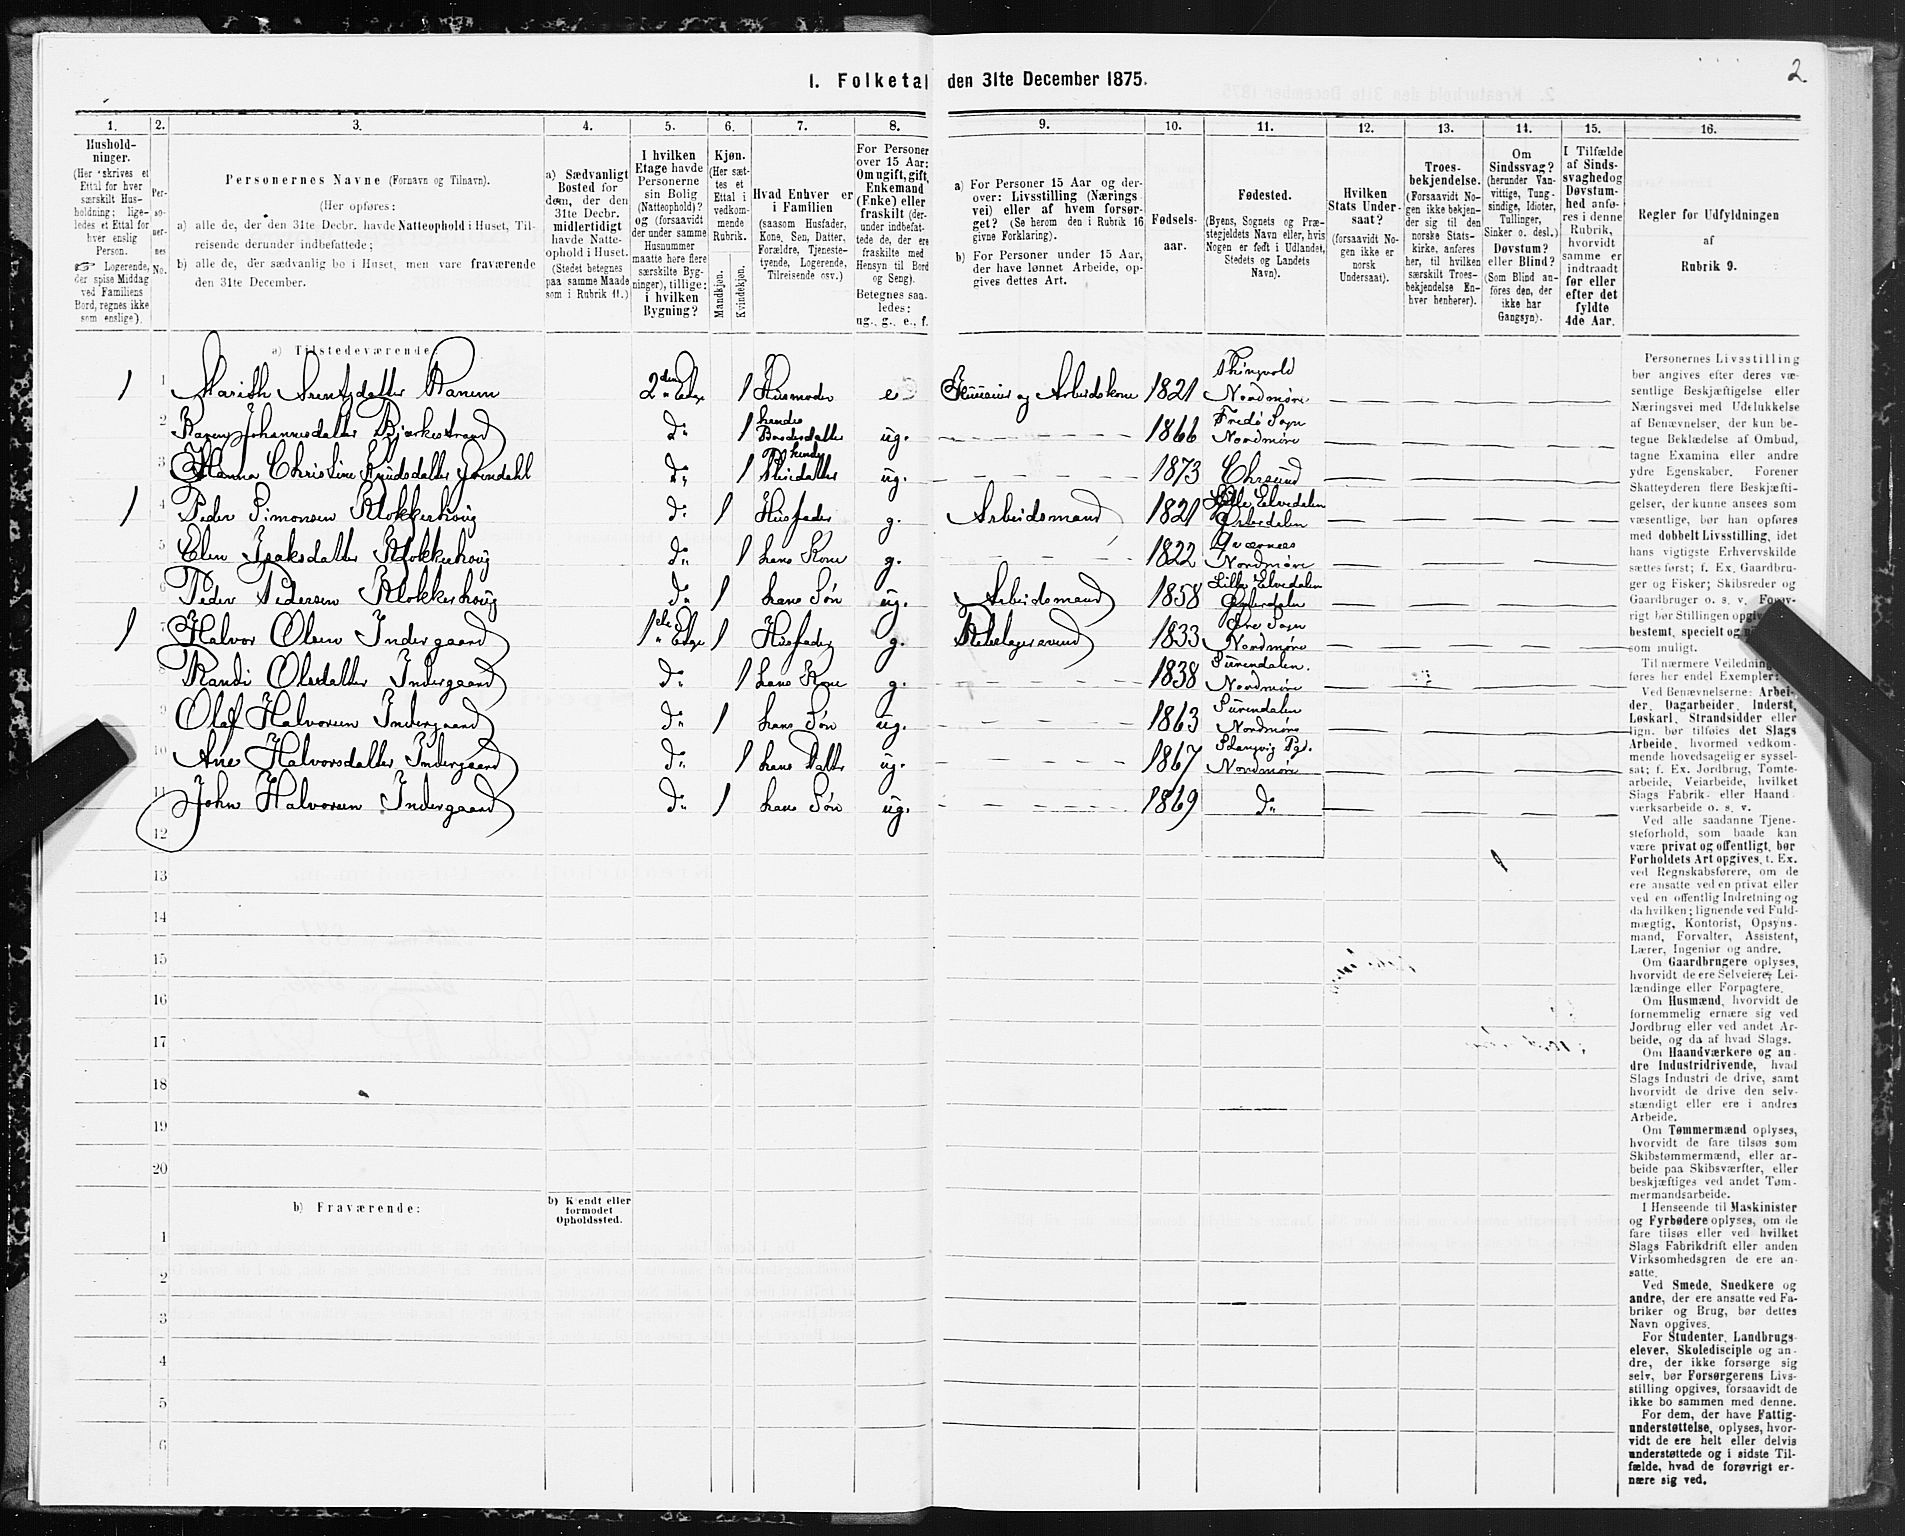 2.
I. Folketal den 31te December 1875.
1. 2. 3. 4. 5. 6. 7. 8. 9. 10. 11. 12. 13. 14. 15. 16.
Hushold-
ninger.
(Her skrives et
Ettal for hver
særskilt Hus-
holdning; lige-
ledes et Ettal for
hver enslig
Person.
☞ Logerende,
der spise Middag
ved Familiens
Bord, regnes ikke
som enslige).
Per-
so-
ner-
nes
No.
Personernes Navne (Fornavn og Tilnavn).
(Her opføres:
a) alle de, der den 31te Decbr. havde Natteophold i Huset, Til-
reisende derunder indbefattede;
b) alle de, der sædvanlig bo i Huset, men vare fraværende
den 31te December.
a) Sædvanligt
Bosted for
dem, der den
31te Decbr.
midlertidigt
havde Natte-
ophold i Huset.
(Stedet betegnes
paa samme Maade
som i Rubrik 11.)
I hvilken
Etage havde
Personerne
sin Bolig
(Natteophold)?
og (forsaavidt
der under samme
Husnummer
maatte høre flere
særskilte Byg-
ninger), tillige:
i hvilken
Bygning?
Kjøn.
(Her sæt-
tes et
Ettal i
vedkom-
mende
Rubrik.
Mandkjøn.
Kvindekjøn.
Hvad Enhver er
i Familien
(saasom Husfader,
Kone, Søn, Datter,
Forældre, Tjeneste-
tyende, Logerende,
Tilreisende osv.)
For Personer
over 15 Aar:
Om ugift, gift,
Enkemand
(Enke) eller
fraskilt (der-
under indbefat-
tede de, der ere
fraskilte med
Hensyn til Bord
og Seng).
Betegnes saa-
ledes:
ug., g., e., f.
a) For Personer 15 Aar og der-
over: Livsstilling (Nærings-
vei) eller af hvem forsør-
get? (Se herom den i Rubrik 16
givne Forklaring).
b) For Personer under 15 Aar,
der have lønnet Arbeide, op-
gives dettes Art.
Fødsels-
aar.
Fødested.
(Byens, Sognets og Præ-
stegjeldets Navn eller, hvis
Nogen er født i Udlandet,
Stedets og Landets
Navn).
Hvilken
Stats Under-
saat?
(forsaavidt No-
gen ikke er
norsk
Undersaat).
Troes-
bekjendelse.
(Forsaavidt No-
gen ikke bekjen-
der sig til den
norske Stats-
kirke, anføres
her, til hvilken
særskilt Troes-
bekjendelse En-
hver henhører).
Om
Sindssvag?
(herunder Van-
vittige, Tung-
sindige, Idioter,
Tullinger,
Sinker o. desl.)
Døvstum?
eller Blind?
(Som Blind an-
føres den, der
ikke har
Gangsyn).
I Tilfælde
af Sinds-
svaghed og
Døvstum-
hed anfø-
res i denne
Rubrik,
hvorvidt
samme er
indtraadt
før eller
efter det
fyldte
4de Aar.
Regler for Udfyldningen
af
Rubrik 9.
a) Tilstedeværende:
1 1 Marith Arentsdatter Ranem 2den Etage 1 Husmoder e og Arbeidskone 1821 Thingvold Nordmøre
2 Karen Johannesdatter Bjerkestrand do 1 hendes Datterdatter ug. 1866 Fredø Sogn Nordmøre
3 Hanna Christine Knudsdatter do 1 ug. 1873 Chrsund
1 4 Peder Simonsen Klokkerhoug do 1 Husfader g. Arbeidsmand 1821 Lille Elvedalen Østerdalen
5 Elen Isaksdatter Klokkerhoug do 1 hans Kone g. 1822 Qværnes Nordmøre
6 Peder Pedersen Klokkerhoug do 1 hans Søn ug. Arbeidsmand 1858 Lille Elvedalen Østerdalen
1 7 Halvor Olsen Indergaard 1ste Etage 1 Husfader g. 1833 Øre Sogn Nordmøre
8 Randi Olsdatter Indergaard do 1 hans Kone g. 1838 Surendalen. Nordmøre
9 Olaf Halvorsen Indergaard do 1 hans Søn ug. 1863 Surendalen Nordmøre
10 Ane Halvorsdatter Indergaard do 1 hans Datter ug. 1867 Stangvig Pgd. Nordmøre
11 John Halvorsen Indergaard do 1 hans Søn ug. 1869 do
12
13
14
15
16
17
18
19
20
b) Fraværende:
b) Kjendt eller
formodet
Opholdssted.
1
2
3
4
5
6
Personernes Livsstilling
bør angives efter deres væ-
sentlige Beskjæftigelse eller
Næringsvei med Udelukkelse
af Benævnelser, der kun be-
tegne Beklædelse af Ombud,
tagne Examina eller andre
ydre Egenskaber. Forener
Skatteyderen flere Beskjæfti-
gelser, der kunne ansees som
væsentlige, bør han opføres
med dobbelt Livsstilling, idet
hans vigtigste Erhvervskilde
sættes først; f. Ex. Gaardbru-
ger og Fisker; Skibsreder og
Gaardbruger o. s. v. Forøv-
rigt bør Stillingen opgives
bestemt, specielt og
som muligt.
Til nærmere Veiledning
føres her endel Exempler:
Ved Benævnelserne: Arbei-
der, Dagarbeider, Inderst,
Løskarl, Strandsidder eller
lign. bør tilføies det Slags
Arbeide, hvormed vedkom-
mende hovedsagelig er syssel-
sat; f. Ex. Jordbrug, Tomte-
arbeide, Veiarbeide, hvilket
Slags Fabrik- eller Haand-
værksarbeide o. s. v.
Ved alle saadanne Tjene-
steforhold, som baade kan
være privat og offentligt, bør
Forholdets Art opgives, t. Ex.
ved Regnskabsførere, om de
ere ansatte ved en privat eller
ved en offentlig Indretning og
da hvilken; lignende ved Fuld-
mægtig, Kontorist, Opsyns-
mand, Forvalter, Assistent,
Lærer, Ingeniør og andre.
Om Gaardbrugere oplyses,
hvorvidt de ere Selveiere, Lei-
lændinge eller Forpagtere.
Om Husmænd, hvorvidt de
fornemmelig ernære sig ved
Jordbrug eller ved andet Ar-
beide, og da af hvad Slags.
Om Haandværkere og an-
dre Industridrivende, hvad
Slags Industri de drive, samt
hvorvidt de drive den selv-
stændigt eller ere i andres
Arbeide.
Om Tømmermænd oplyses,
hvorvidt de fare tilsøs som
Skibstømmermænd, eller ar-
beide paa Skibsværfter, eller
beskjæftiges ved andet Tøm-
mermandsarbeide.
I Henseende til Maskinister
og Fyrbødere oplyses, om de
fare tilsøs eller ved hvilket
Slags Fabrikdrift eller anden
Virksomhedsgren de ere an-
satte.
Ved Smede, Snedkere og
andre, der ere ansatte ved Fa-
briker og Brug, bør dettes
Navn opgives.
For Studenter, Landbrugs-
elever, Skoledisciple og an-
dre, der ikke forsørge sig
selv, bør Forsørgerens Livs-
stilling opgives, forsaavidt de
ikke bo sammen med denne.
For dem, der have Fattig-
understøttelse, oplyses, hvor-
vidt de ere helt eller delvis
understøttede og i sidste Til-
fælde, hvad de forøvrigt er-
nære sig ved.